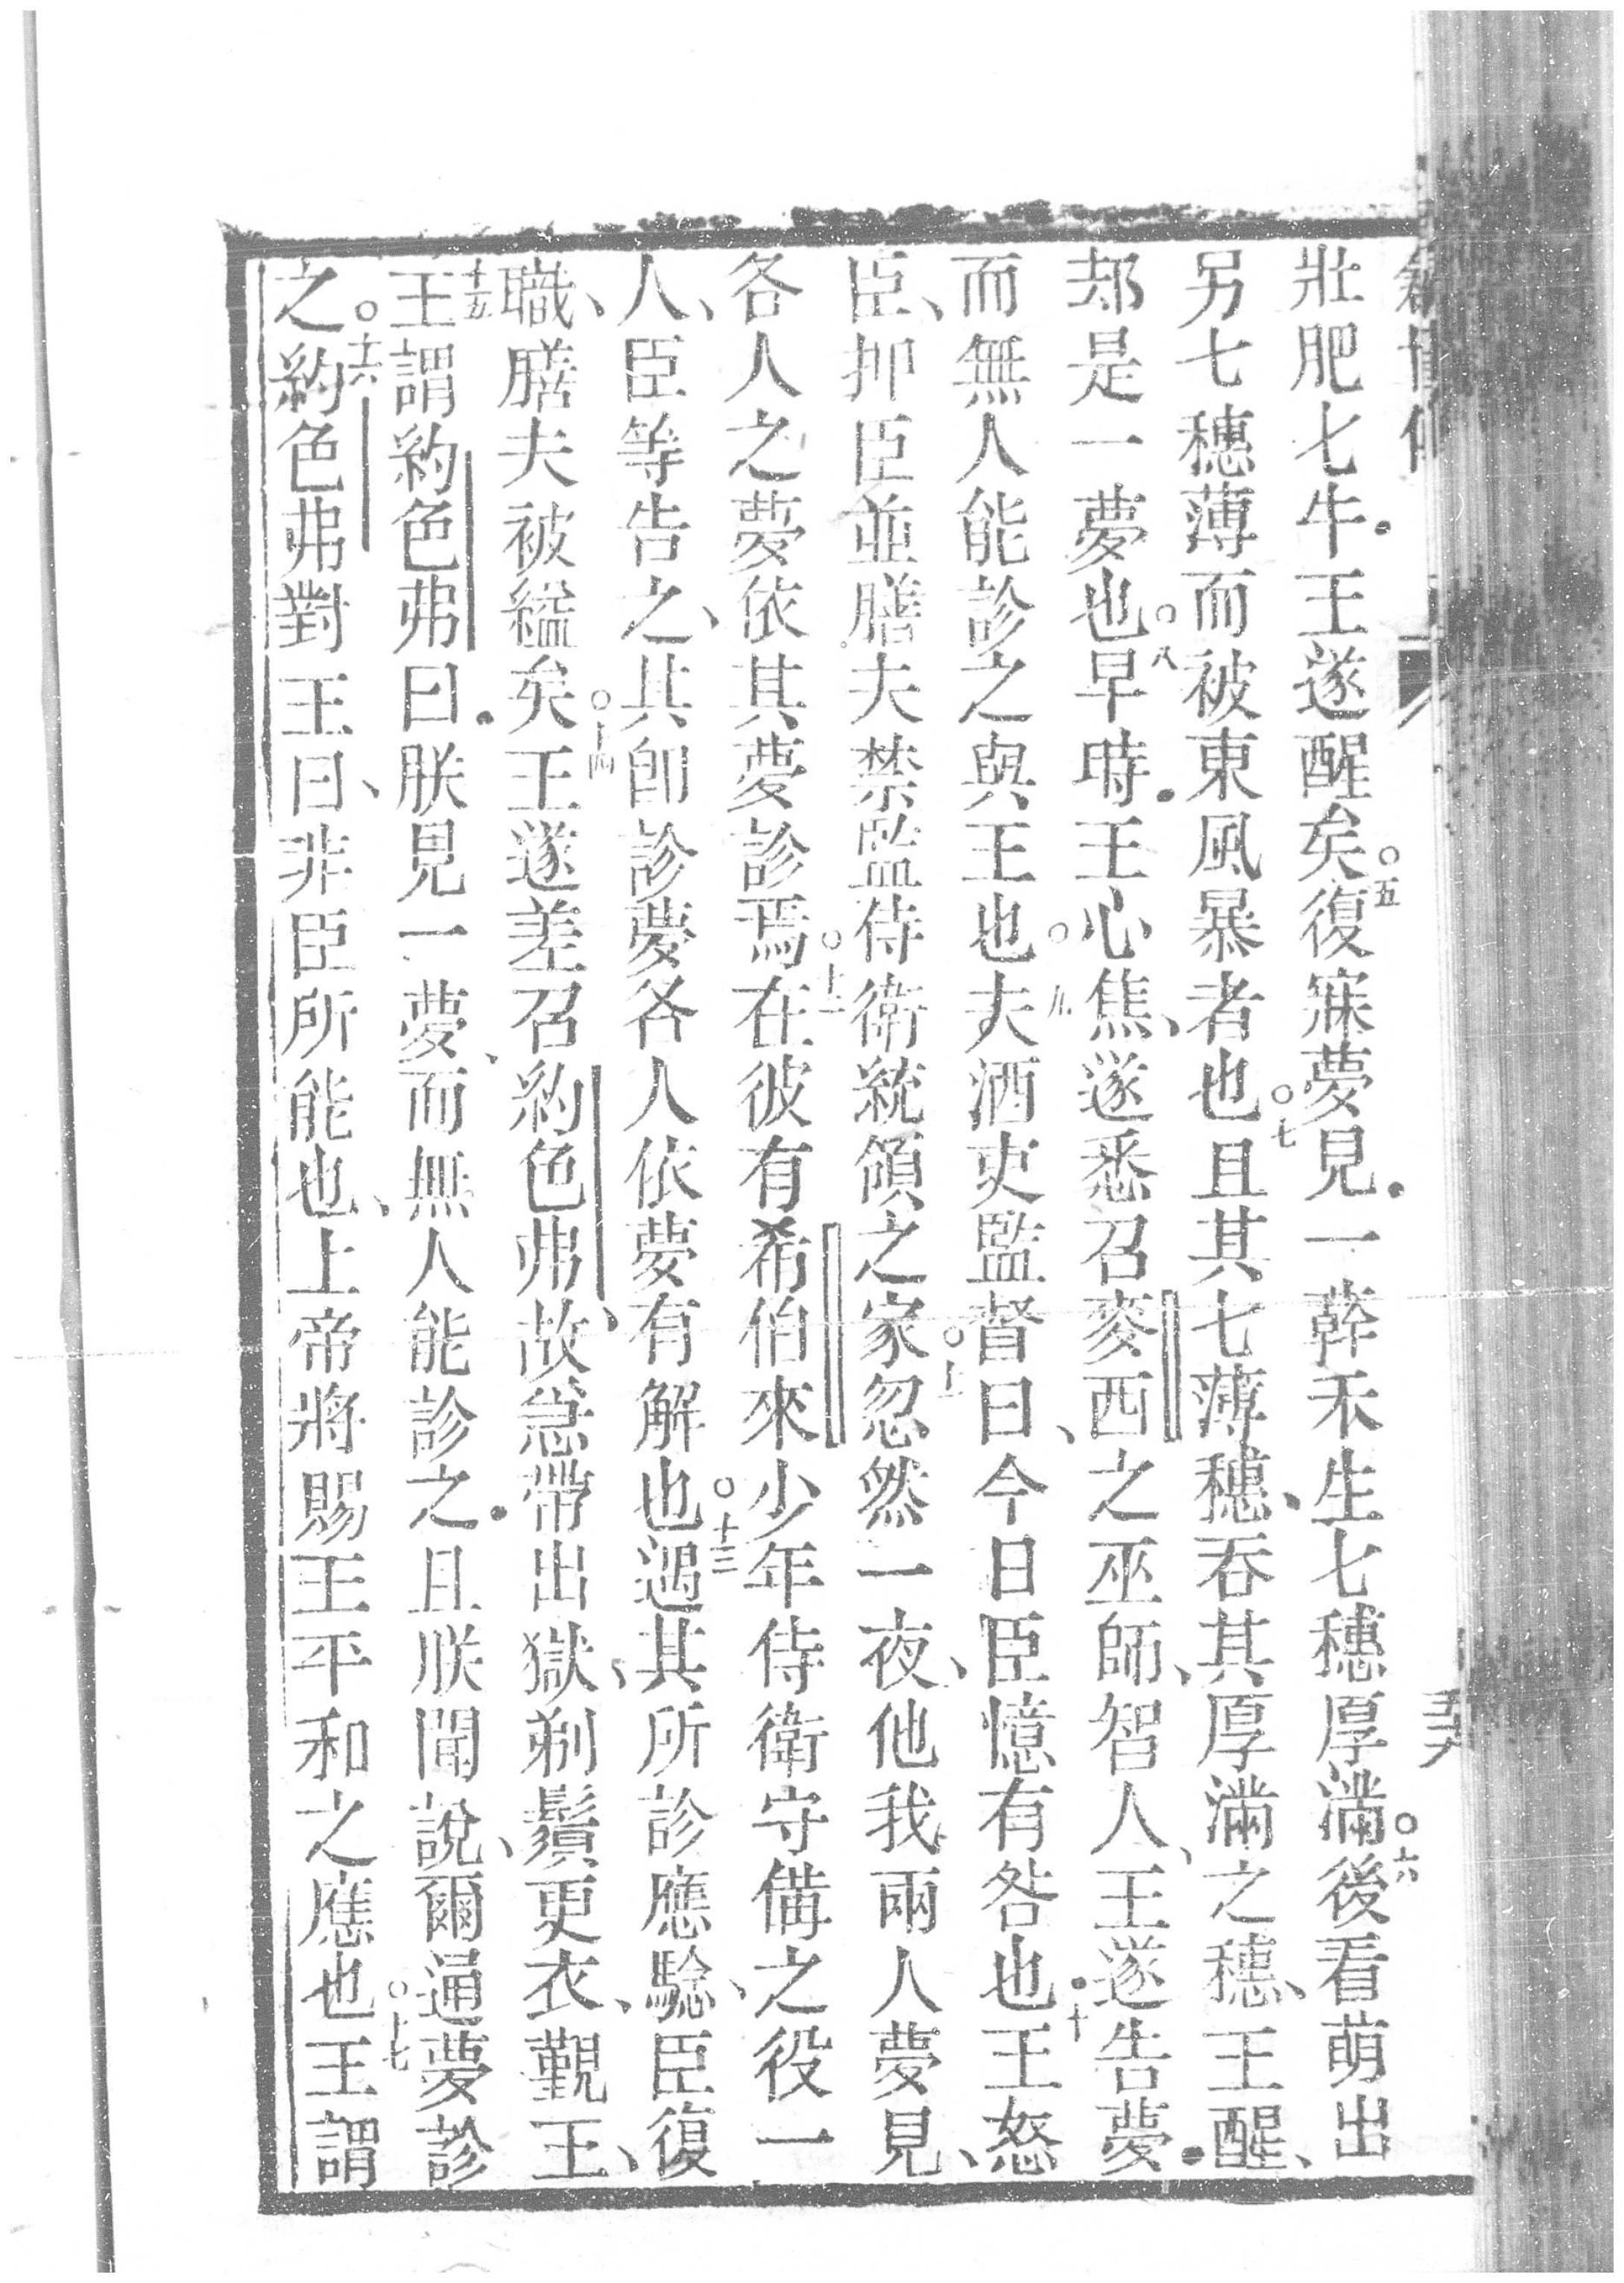 壯肥七牛．王遂醒矣○五復寐夢見．一幹禾生七穗厚滿○六後看萌出
另七穗薄而被東風暴者也○七且其七薄穗、吞其厚滿之穗、王醒、
却是一夢也○八早時．王心焦、遂悉召麥西之巫師、智人、王遂告夢．
而無人能診之與王也○九夫酒吏監督曰、今日臣憶有咎也．十王怒
臣、抑臣並膳夫禁監侍衛統領之家○十一忽然一夜、他我兩人夢見、
各人之夢依其夢診焉○十二在彼有希伯來少年侍衛守備之役一
人、臣等告之、其卽診夢各人依夢有解也○十三遇其所診應驗、臣復
職、膳夫被縊矣○十四王遂差召約色弗、故急帶出獄、剃鬚更衣、覲王、
十五王謂約色弗曰．朕見一夢、而無人能診之．且朕聞說、爾通夢診
之○十六約色弗對王曰、非臣所能也、上帝將賜王平和之應也○十七王謂